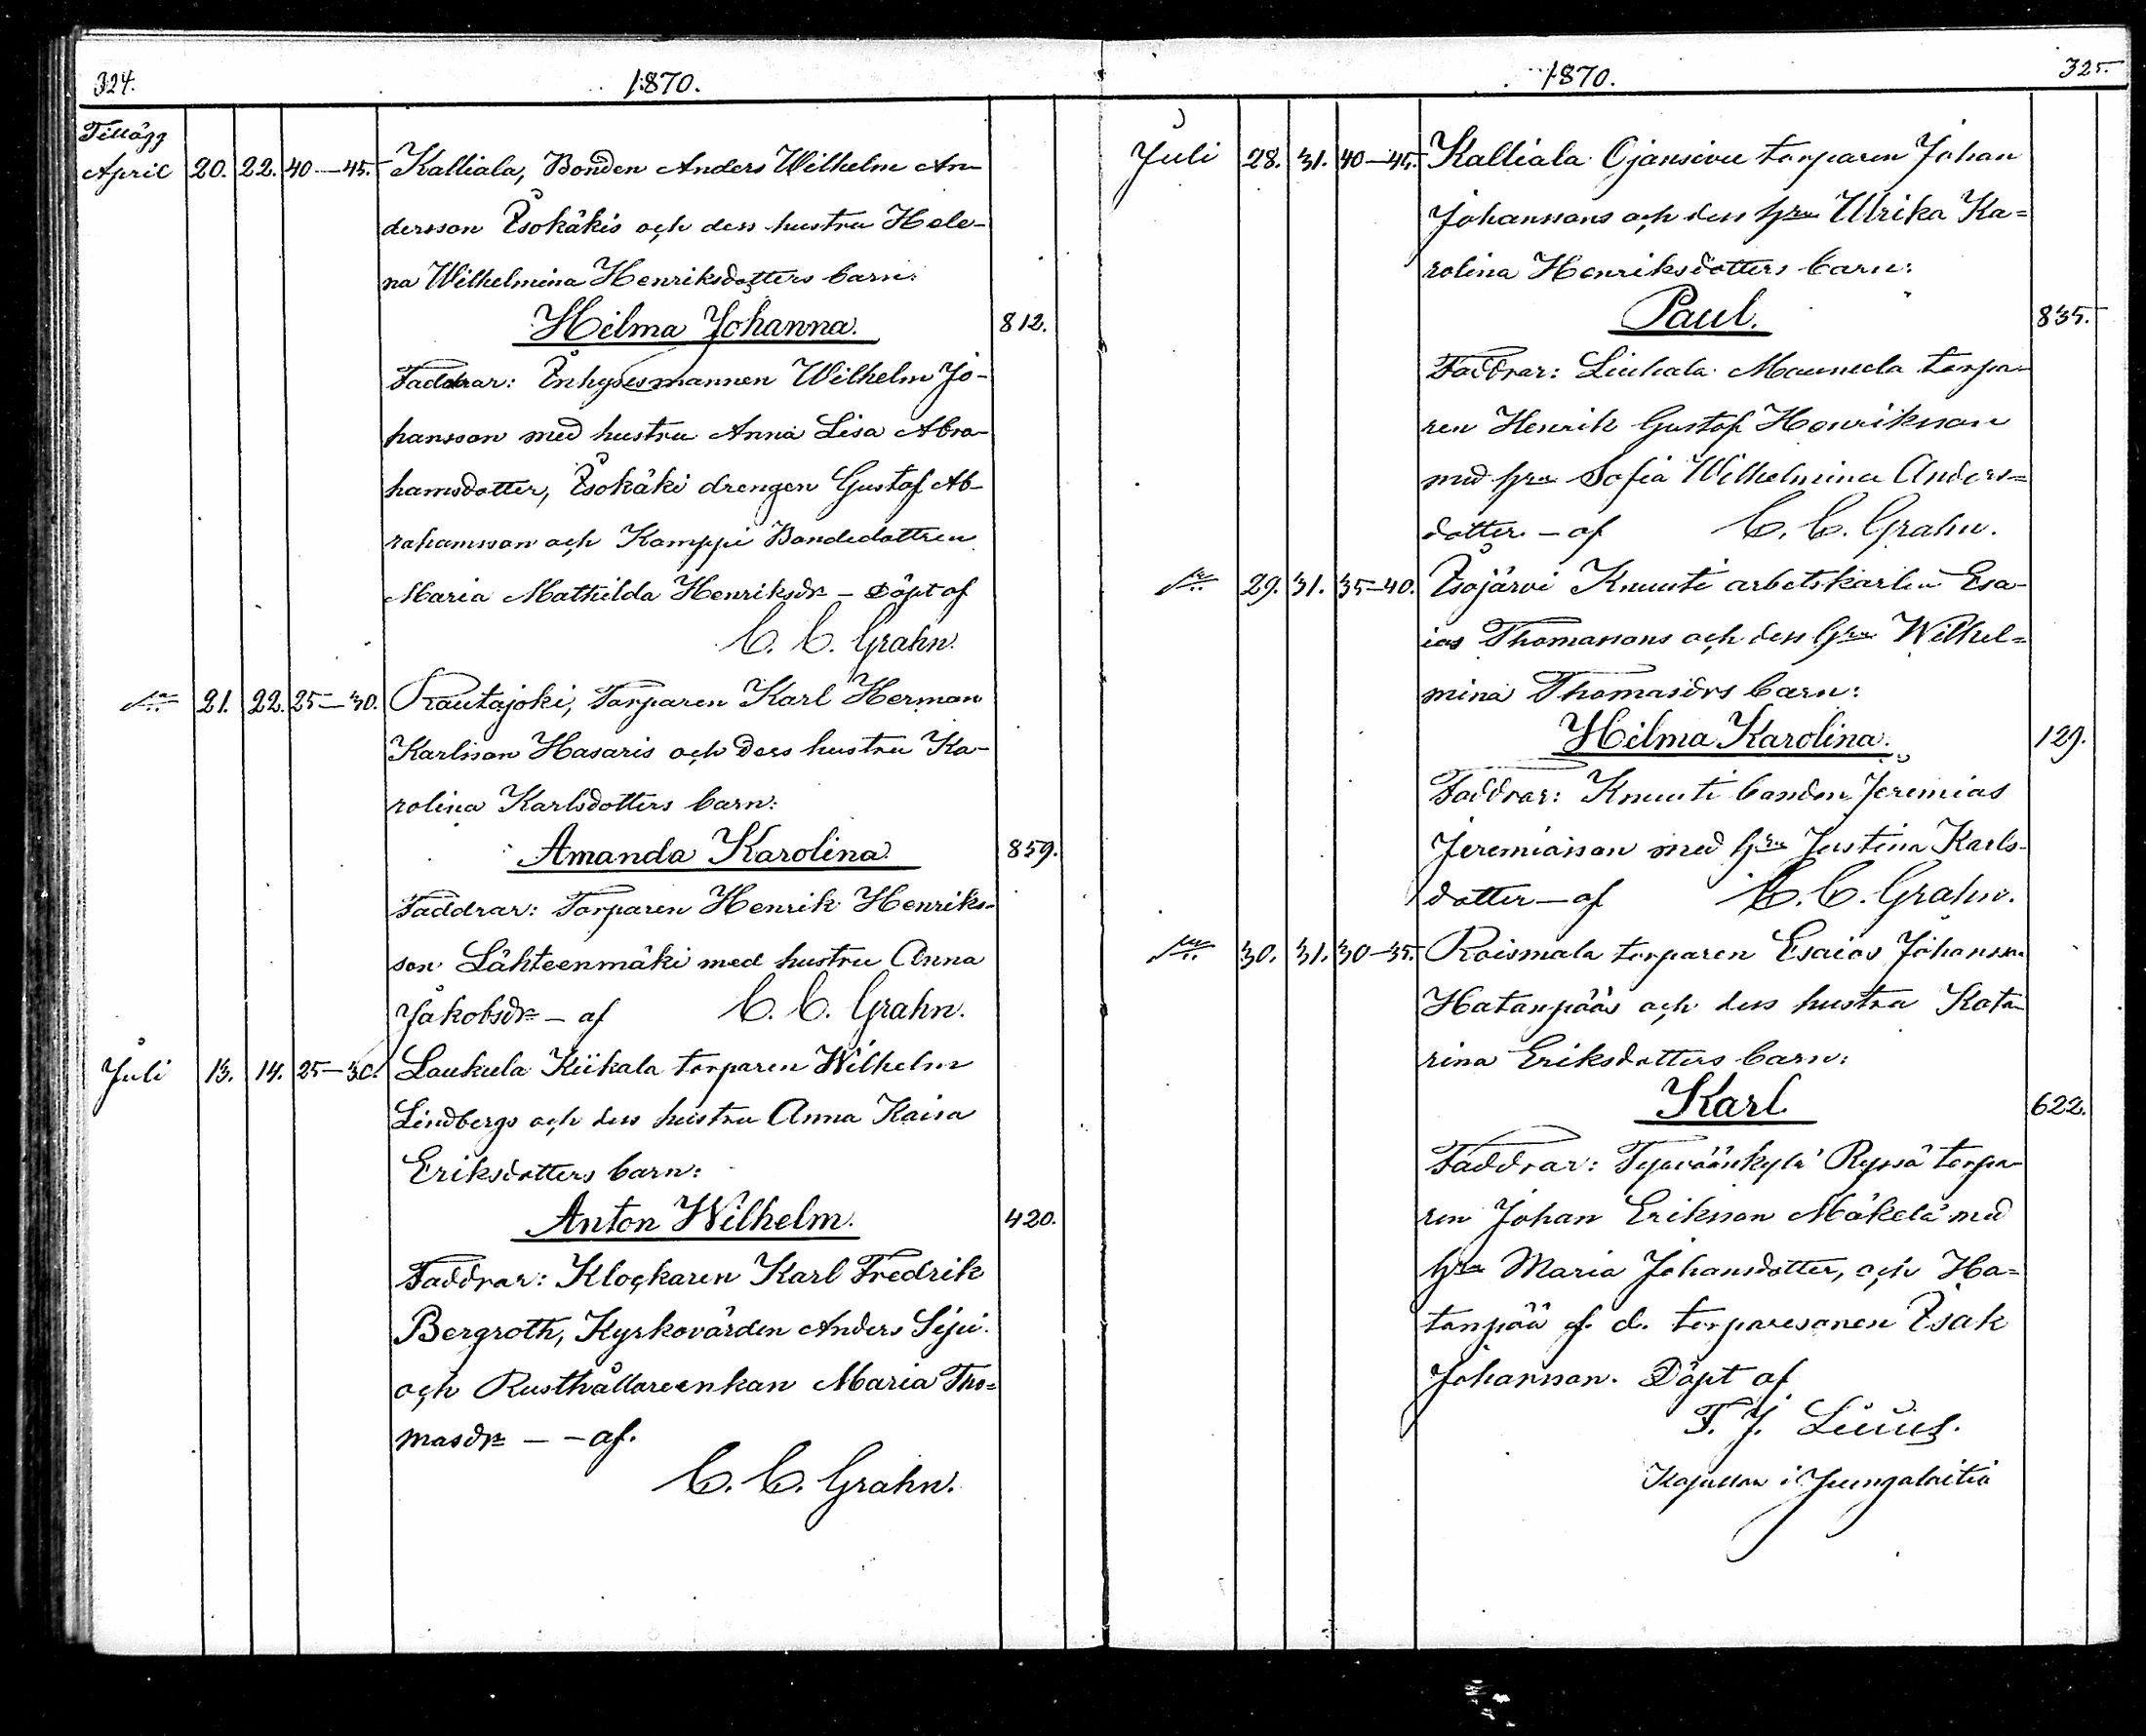 324.
1870.
Tillägg
April 20. 22. 40—45. Kalliala, Bonden Anders Wilhelm An-
dersson Isokäkis och dess hustru Hele-
na Wilhelmina Henriksdotters barn:
Hilma Johanna. 812.
Faddrar: Inhysesmannen Wilhelm Jo-
hansson med hustru Anna Lisa Abra-
hamsdotter, Isokäki drengen Gustaf Ab-
rahamsson och Kamppi Bondedottren
Maria Mathilda Henriksdr – Döpt af
C. C. Grahn.
21. 22. 25—30. Rautajoki, Torparen Karl Herman
Karlsson Hasaris och dess hustru Ka-
rolina Karlsdotters barn:
Amanda Karolina. 859.
Faddrar: Torparen Henrik Henriks-
son Lähteenmäki med hustru Anna
Jakobsdr – af C. C. Grahn.
Juli 13. 14. 25—30. Laukula Kiikala torparen Wilhelm
Lindbergs och dess hustru Anna Kaisa
Eriksdotters barn:
Anton Wilhelm. 420.
Faddrar: Klockaren Karl Fredrik
Bergroth, Kyrkovärden Anders
och Rusthållareenkan Maria Tho=
masdr – – af.
C. C. Grahn.
1870.
325.
Juli 28. 31. 40—45. Kalliala Ojansivu torparen Johan
Johanssons och dess hru Ulrika Ka=
rolina Henriksdotters barn:
Paul. 835.
Faddrar: Liuhala Maunula torpa-
ren Henrik Gustaf Henriksson
med hru Sofia Wilhelmina Anders=
dotter – af C. C. Grahn.
29. 31. 35—40. Isojärvi Knuuti arbetskarlen Esa-
ias Thomassons och dess hru Wilhel=
mina Thomasdrs barn:
Hilma Karolina. 129.
Faddrar: Knuuti bonden Jeremias
Jeremiasson med hru Justina Karls-
dotter – af C. C. Grahn.
30. 31. 30—35. Roismala torparen Esaias Johansson
Hatanpääs och dess hustru Kata-
rina Eriksdotters barn:
Karl 622.
Faddrar: Tyrväänkylä Ryssä torpa-
ren Johan Eriksson Mäkelä med
hru Maria Johansdotter, och Ha=
tanpää f. d. torparesonen Isak
Johansson. Döpt af
F. J.
i